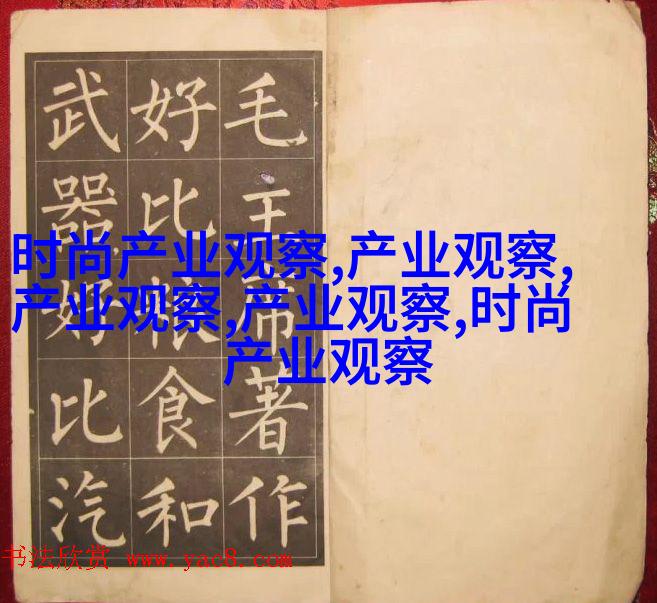 毛主席著作
好比粮食和
武器好比汽
时尚产业观察,产业观察,
产业观察,产业观察,时尚
产业观察
书法欣赏 www.yac8.com